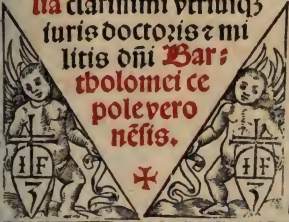 lia clarissimi vtriusqꝫ
iuris doctoris ⁊ mi
litis dñi Bar⸗
tholomei ce
pole vero
nẽsis.
✠
I F I F